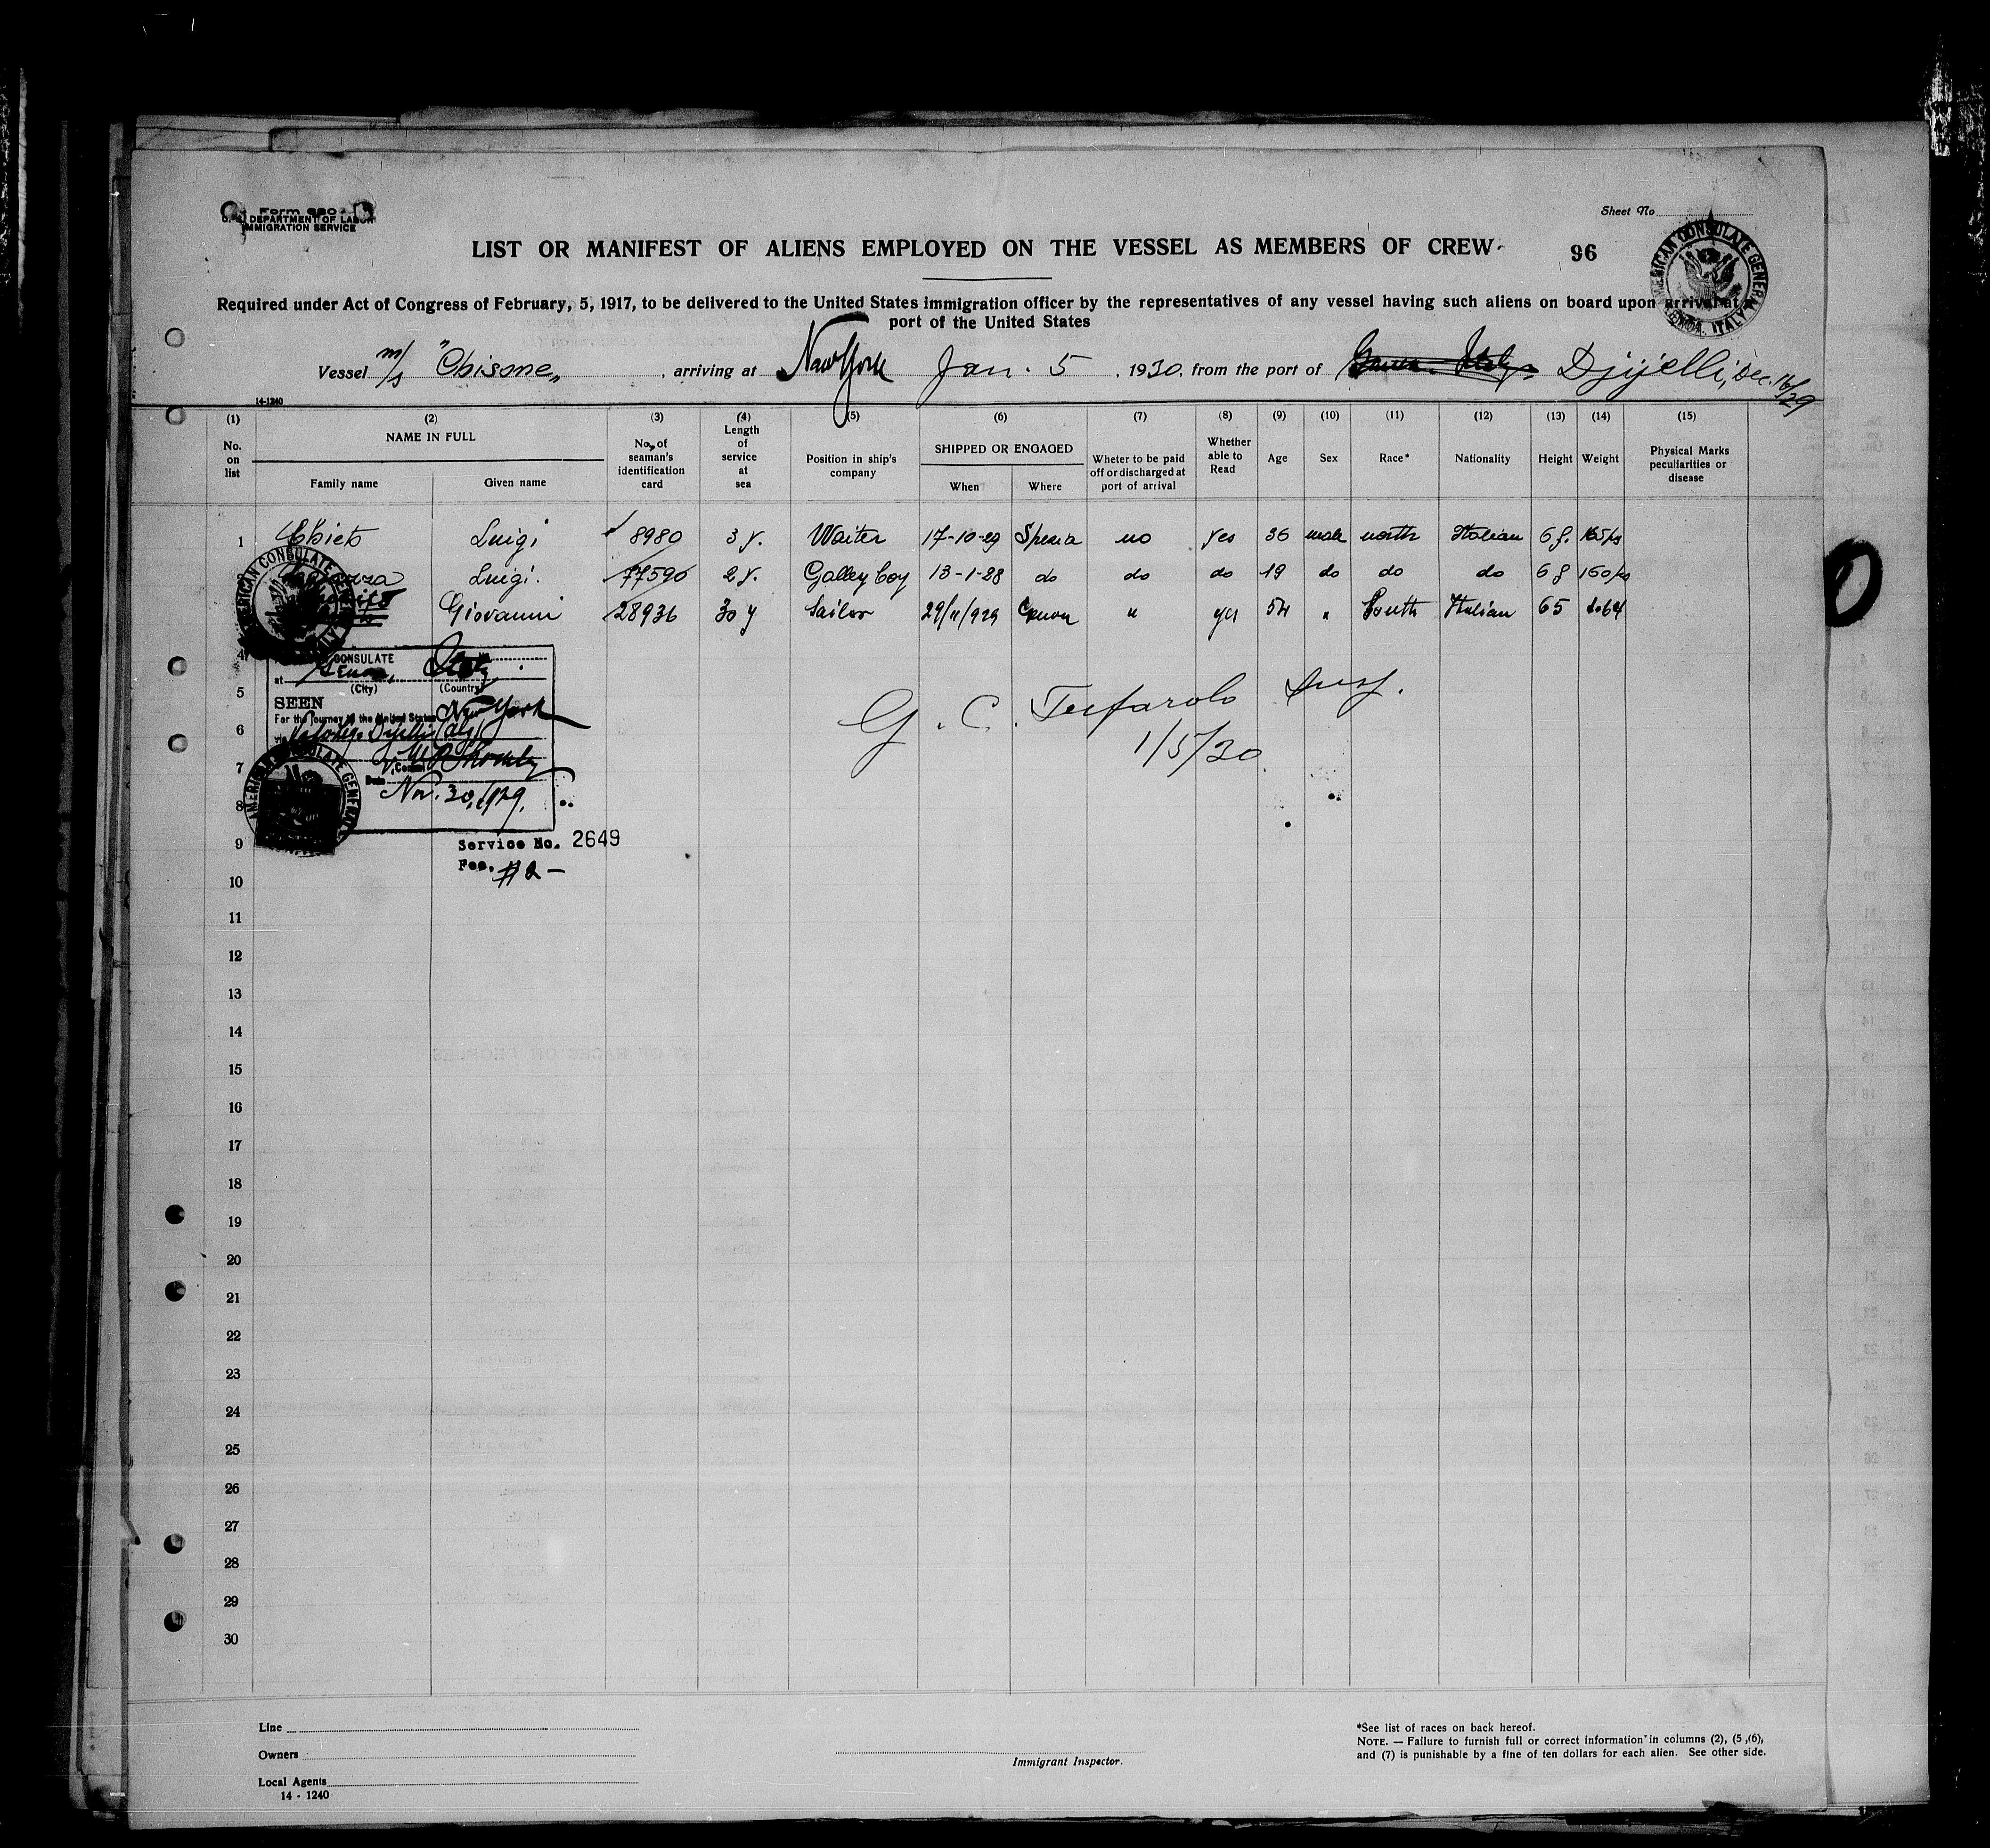 Form 680
U. S. DEPARTMENT OF LABOR
IMMIGRATION SERVICE
Sheet No
LIST OR MANIFEST OF ALIENS EMPLOYED ON THE VESSEL AS MEMBERS OF CREW
96
AMERICAN CONSULATE GENERAL
GENOA, ITALY
Required under Act of Congress of February, 5, 1917, to be delivered to the United States immigration officer by the representatives of any vessel having such aliens on board upon arrival at a
port of the United States
Vessel m/s "Chisone" , arriving at New York Jan. 5 , 1930, from the port of Genoa Italy Djijelli, Dec. 16/29
14-1240
(1) (2) (3) (4) (5) (6) (7) (8) (9) (10) (11) (12) (13) (14) (15)
No. on list
NAME IN FULL
Family name
Given name
No. of seaman's identification card
Length of service at sea
Position in ship's company
SHIPPED OR ENGAGED
When
Where
Wheter to be paid off or discharged at port of arrival
Whether able to Read
Age
Sex
Race*
Nationality
Height
Weight
Physical Marks peculiarities or disease
1 Luigi 8980 3 y. Waiter 17-10-29 Spezia no yes 36 male north Italian 6 f. 165 ps
2 Luigi. 77590 2 y. Galley boy 13-1-28 do do do 19 do do do 6 f 150 ps
Giovanni 28936 30 y Sailor 29/11/929 Genoa " yes 54 " South Italian 65 164
AMERICAN CONSULATE GENERAL
4
CONSULATE
at Genoa, Italy.
(City) (Country)
5
SEEN
For the journey to the United States New York
6
via
7
V. Consul
Date Nov. 30, 1929.
AMERICAN CONSULATE GENERAL
8
G. C. Insp.
1/5/30
9
Service No. 2649
Fee. #2-
10
11
12
13
14
15
16
17
18
19
20
21
22
23
24
25
26
27
28
29
30
Line
Owners
Local Agents
14 - 1240
Immigrant Inspector.
*See list of races on back hereof.
NOTE. — Failure to furnish full or correct information in columns (2), (5 ,(6),
and (7) is punishable by a fine of ten dollars for each alien. See other side.